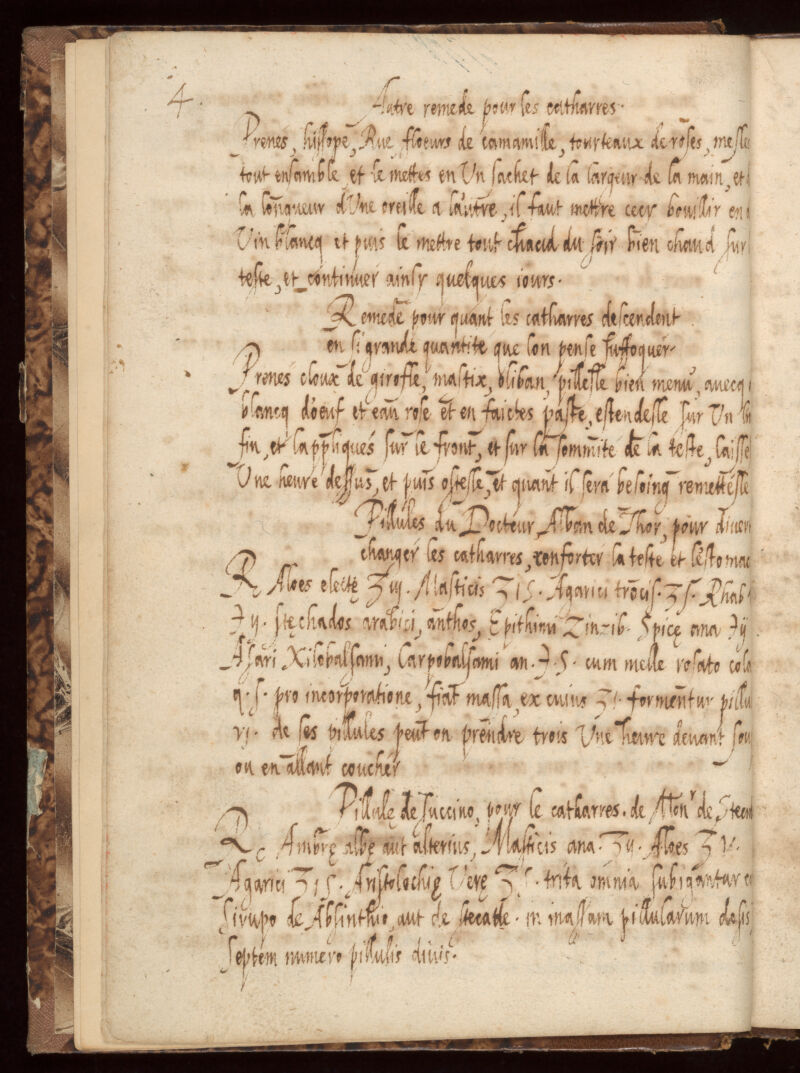 4.
Autre remede pour les catharres.
Prenes, hissope, Rue, floeurs de camamille, tourteaux de roses, mesle
tout ensamble, et le mettes en Un sachet de la largeur de la main, et
la longueur dUne oreille a lautre, il faut mettre cecy bouillir en
Vin blancq et puis le mettre tout chacud du soir bien chaud sur
teste, et continuer ainsy quelques iours.
Remede pour quant les catharres descendent
en si grande quantite que lon pense suffoquer.
Prenes cloux de girofle, mastix, oliban, pillesle bien menu, auecq
blancq doeuf et eau rose et en faictes paste, estendesle sur Un
fin, et lappliques sur le front, et sur la sommite de la teste, laisse
Une heure dessus, et puis ostesle, et quant il sera besoing remettesle
Pillules du Docteur Alban de Thor, pour
changer les catharres, conforter la teste et lestomac
℞ Aloes electę ʒ iij. Masticis ʒ i s. Agarici trocis. ʒ s. Rhab
℈ ij. stęchados arabici, anthos, Epithimi Zinzib. Spicę ana ℈ ij
Asari Xilobalsami, Carpobalsami an. ℈. s. cum melle rosato cola
q. s. pro incorporatione, fiat massa, ex cuius ʒ i. formentur pillu
vj. de ses pillules peut on prendre trois Une heure deuant sou
ou en allant coucher
Pillulę de succino, pour le catharres. de Monr de
℞ Ambrę albę aut alterius, Masticis ana. ʒ ij. Aloes ʒ v.
Agarici ʒ i s. Aristolochię Verę ʒ s. trita omnia subigantur
Sirupo de Absinthio, aut de stecade. in massam pillularum dosis
septem numero pillulis